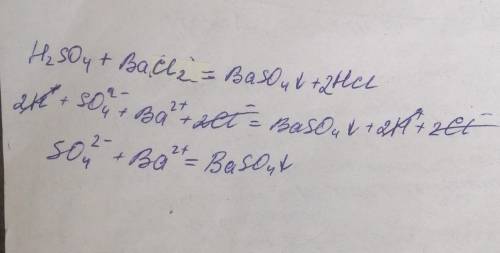 H₂SO₄ + BaCl₂ = BaSO₄↓ + 2HCl
2H⁺ + SO₄²⁻ + Ba²⁺ + 2Cl⁻ = BaSO₄↓ + 2H⁺ + 2Cl⁻
SO₄²⁻ + Ba²⁺ = BaSO₄↓